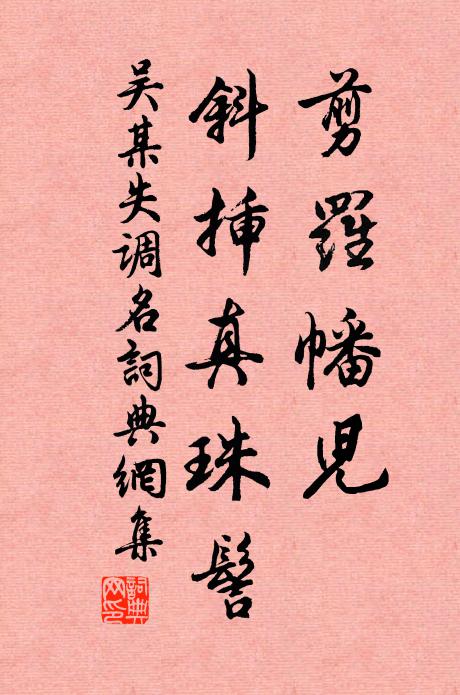 剪羅幡兒
斜插真珠髻
吴某失調名詞典網集
詞典网印